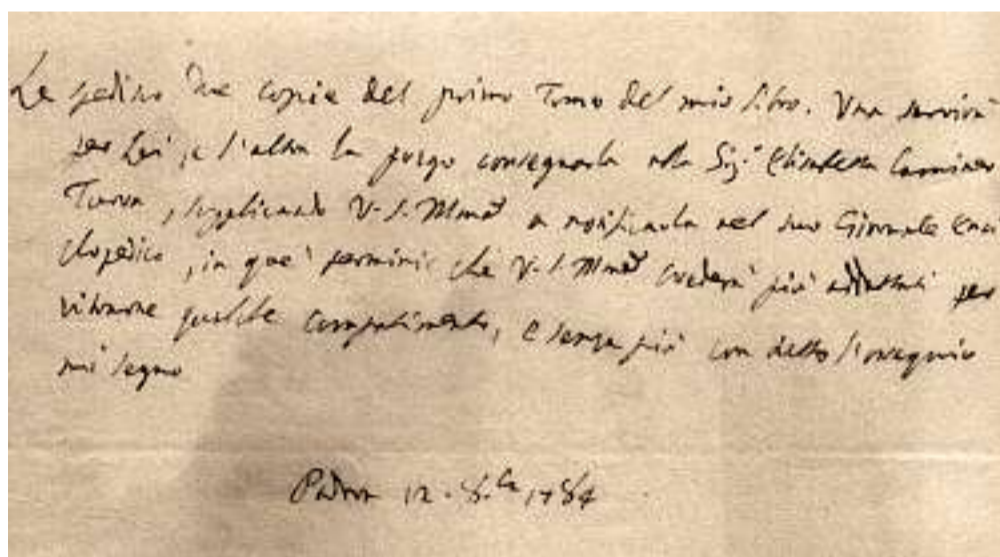 Le spedisco due copie del primo Tomo del mio libro. Una servirà
per Lei, e l'altra la prego consegnarla alla Sig.ª Elisabetta Caminer
Turra, supplicando V.S. Illma a notificarla nel suo Giornale Enci
clopedico, in que' termini che V.S. Illma crederà più adattati per
ritrarne qualche compatimento, e senza più con detto l'ossequio
mi segno
Padova 12. 8.bre 1784